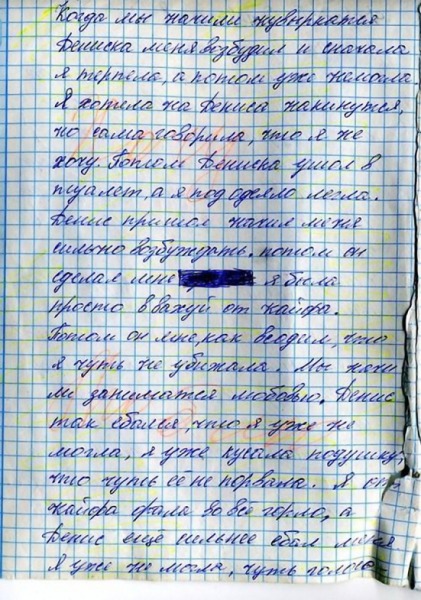 Когда мы начили жувыркатся
Дениска меня взбудил и сначала
я терпела, а потом уже немогла
Я хотела на Дениса накинутся,
но сама говорила, что я не
хочу. Потом Дениска ушол в
туалет, а я под одеяло легла.
Денис пришол начил меня
сильно возбуждать. потом он
сделал мне я была
просто в вахуй от кайфа.
Потом он мне, как вводим, что
я чуть не убижала. Мы начи
ми заниматся любовью. Денис
так ебался, что я уже не
могла, я уже кусала подушку,
что чуть её не порвала. Я от
кайфа орала во всё горло, а
Денис ещё сильнее ебал меня.
Я уже не могла, чуть голоса